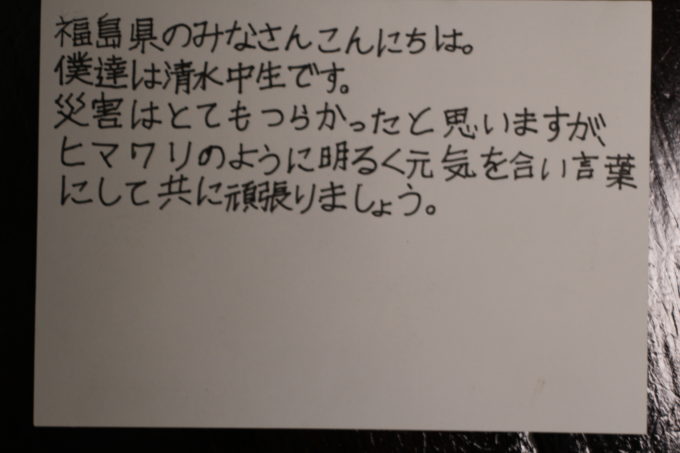 福島県のみなさんこんにちは。
僕達は清水中生です。
災害はとてもつらかったと思いますが、
ヒマワリのように明るく元気を合い言葉
にして共に頑張りましょう。